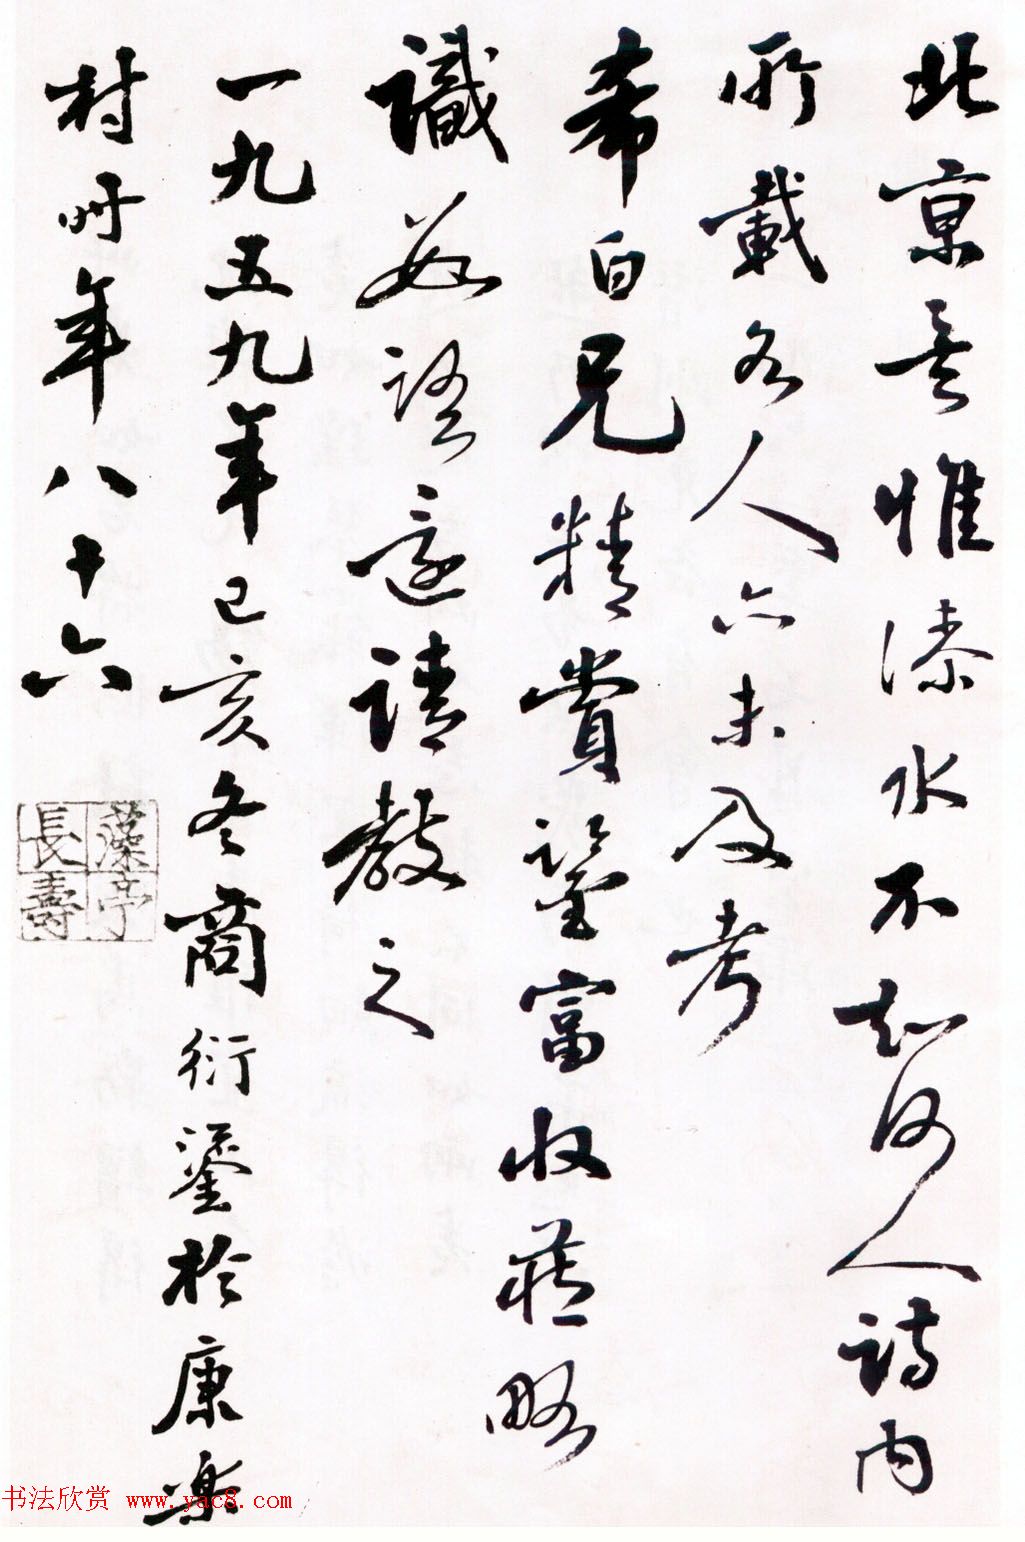 北京矣惟溱水不知何人詩内
所載各人亦未及考
希白兄精賞鑒富收藏略
識數語還請教之
一九五九年己亥冬商衍鎏於康樂
村時年八十六
藻亭
長壽
书法欣赏 www.yac8.com